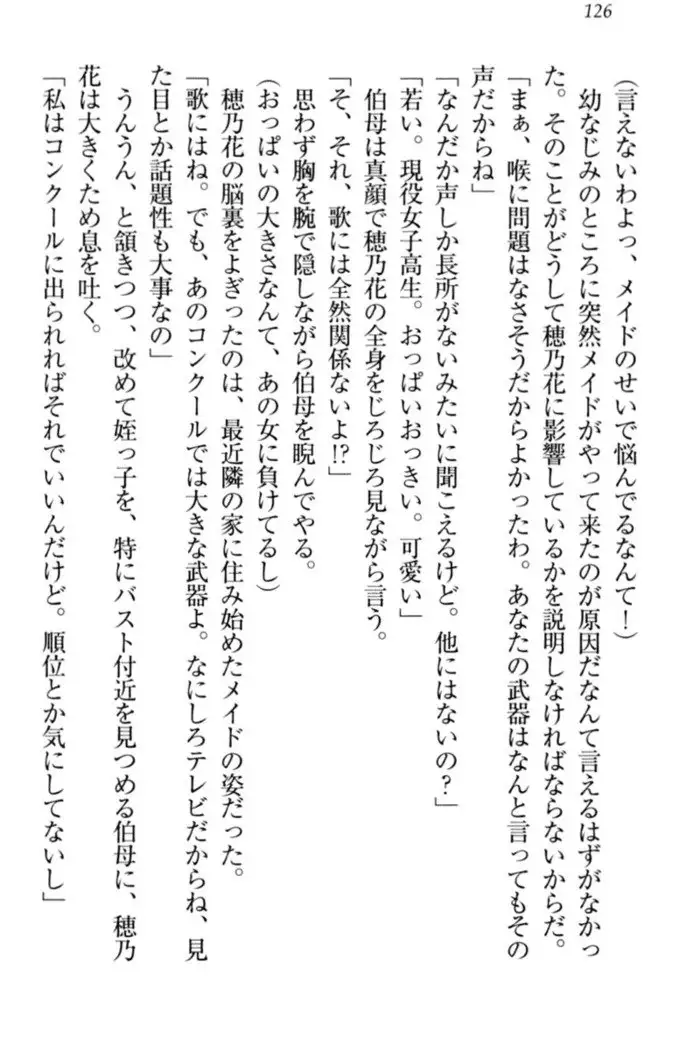 126
(言えないわよっ、メイドのせいで悩んでるなんて!)
幼なじみのところに突然メイドがやって来たのが原因だなんて言えるはずがなかっ
た。そのことがどうして穂乃花に影響しているかを説明しなければならないからだ。
「まぁ、喉に問題はなさそうだからよかったわ。あなたの武器はなんと言ってもその
声だからね」
「なんだか声しか長所がないみたいに聞こえるけど。他にはないの?」
「若い。現役女子高生。おっぱいおっきい。可愛い」
伯母は真顔で穂乃花の全身をじろじろ見ながら言う。
「そ、それ、歌には全然関係ないよ!?」
思わず胸を腕で隠しながら伯母を睨んでやる。
(おっぱいの大きさなんて、あの女に負けてるし)
穂乃花の脳裏をよぎったのは、最近隣の家に住み始めたメイドの姿だった。
「歌にはね。でも、あのコンクールでは大きな武器よ。なにしろテレビだからね、見
た目とか話題性も大事なの」
うんうん、と頷きつつ、改めて姪っ子を、特にバスト付近を見つめる伯母に、穂乃
花は大きくため息を吐く。
「私はコンクールに出られればそれでいいんだけど。順位とか気にしてないし」